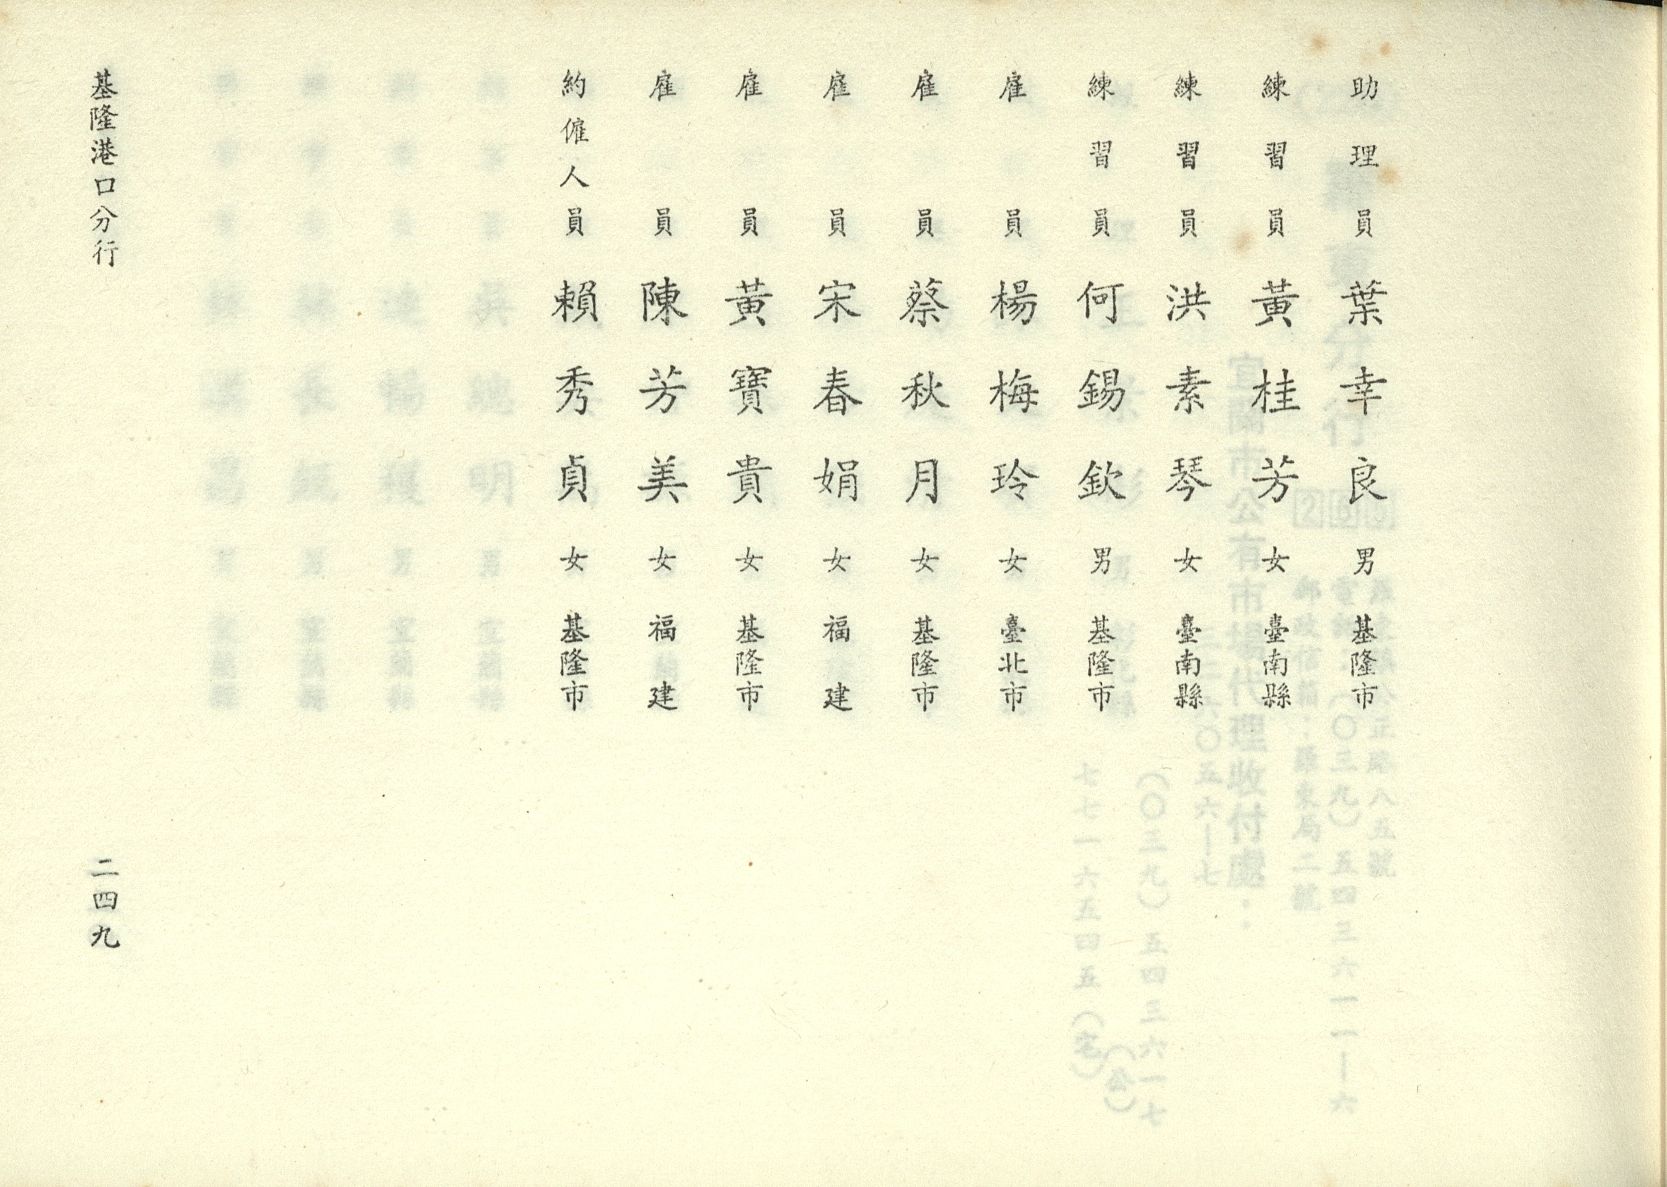 助理員 葉幸良 男 基隆市
練習員 黃桂芳 女 臺南縣
練習員 洪素琴 女 臺南縣
練習員 何錫欽 男 基隆市
雇員 楊梅玲 女 臺北市
雇員 蔡秋月 女 基隆市
雇員 宋春娟 女 福建
雇員 黃寶貴 女 基隆市
雇員 陳芳美 女 福建
約僱人員 賴秀貞 女 基隆市
基隆港口分行
二四九